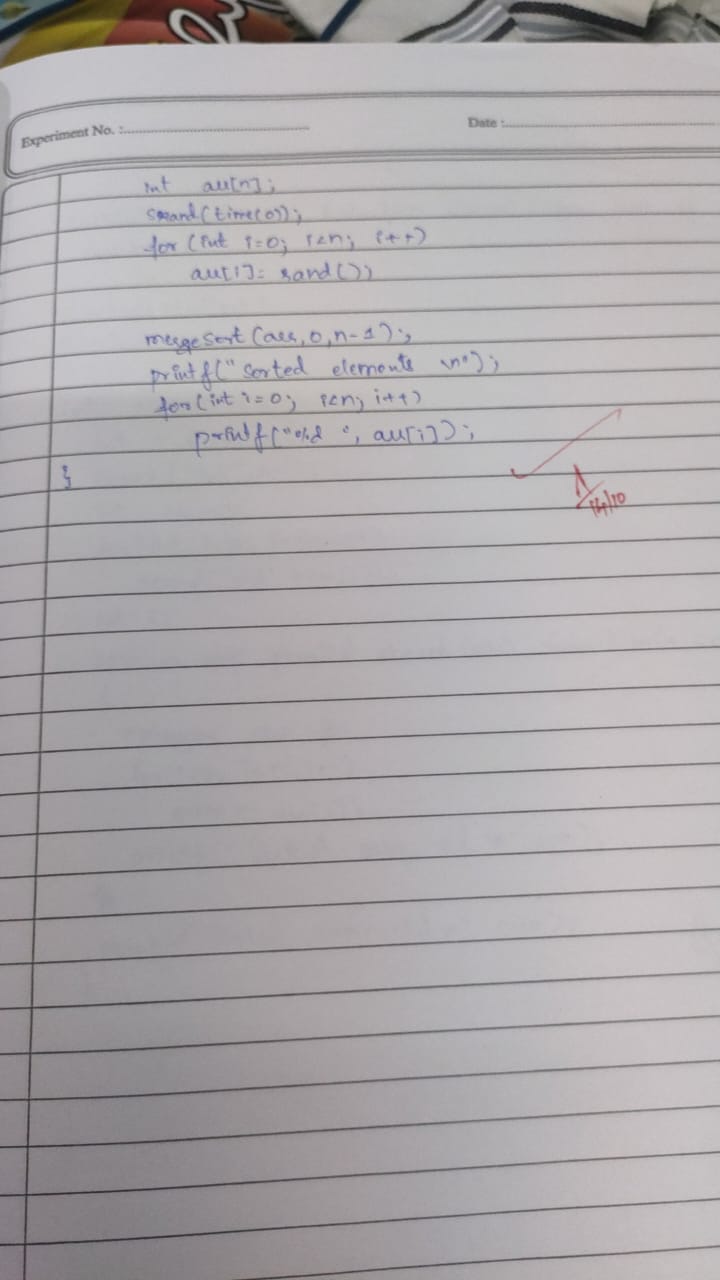 Experiment No. :
Date :
int arr[n];
srand(time(0));
for (int i=0; i<n; i++)
arr[i]= rand();
mergesort (arr, 0, n-1);
printf(" Sorted elements \n");
for(int i=0; i<n; i++)
printf("%d ", arr[i]);
}
14/10